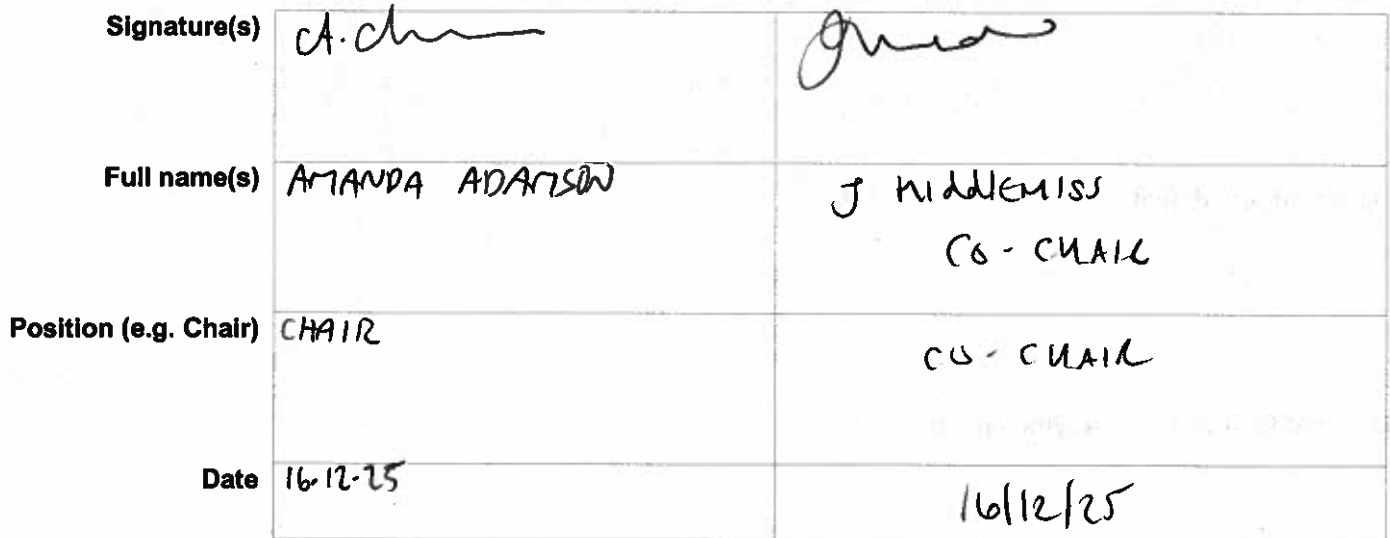 Signature(s)
Full name(s) AMANDA ADAMSON J MIDDLEMISS
CO - CHAIR
Position (e.g. Chair) CHAIR CO - CHAIR
Date 16.12.25 16/12/25